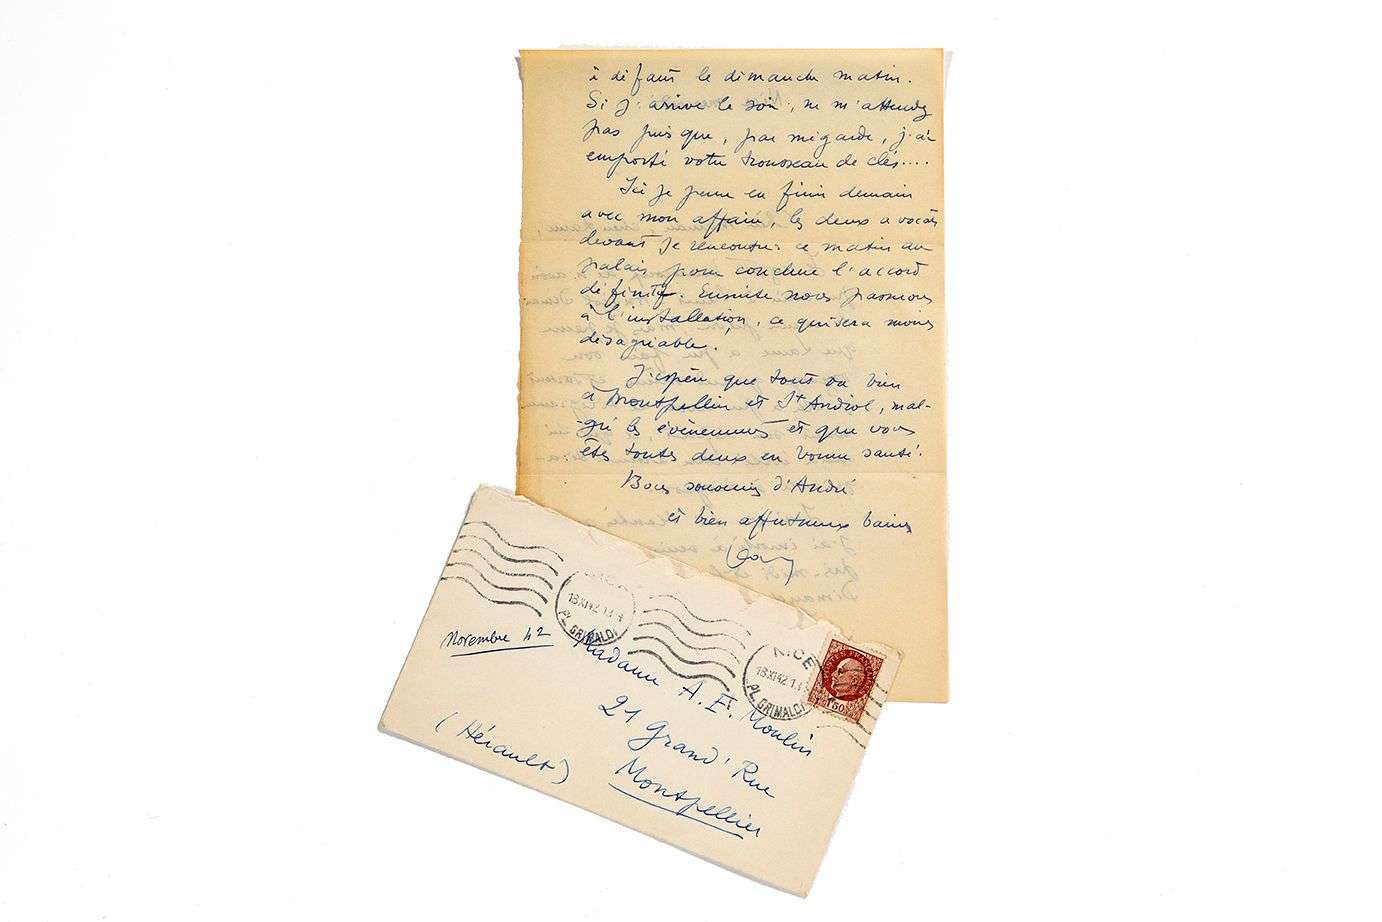 à défaut le dimanche matin.
Si j'arrive le soir, ne m'attendez
pas puisque, par mégarde, j'ai
emporté votre trousseau de clés....
Ici je pense en finir demain
avec mon affaire, les deux avocats
devant se rencontrer ce matin au
palais pour conclure l'accord
définitif. Ensuite nous passerons
à l'installation, ce qui sera moins
désagréable.
J'espère que tout va bien
à Montpellier et St Andiol, mal-
-gré les évènements et que vous
êtes toutes deux en bonne santé.
Bons souvenirs d'André
et bien affectueux baisers
NICE
18 XI 42
PL. GRIMALDI
NICE
18 XI 42
PL. GRIMALDI
POSTES FRANÇAISES
1F50
Novembre 42
Madame A. E. Moulin
21 Grand'Rue
Montpellier
(Hérault)